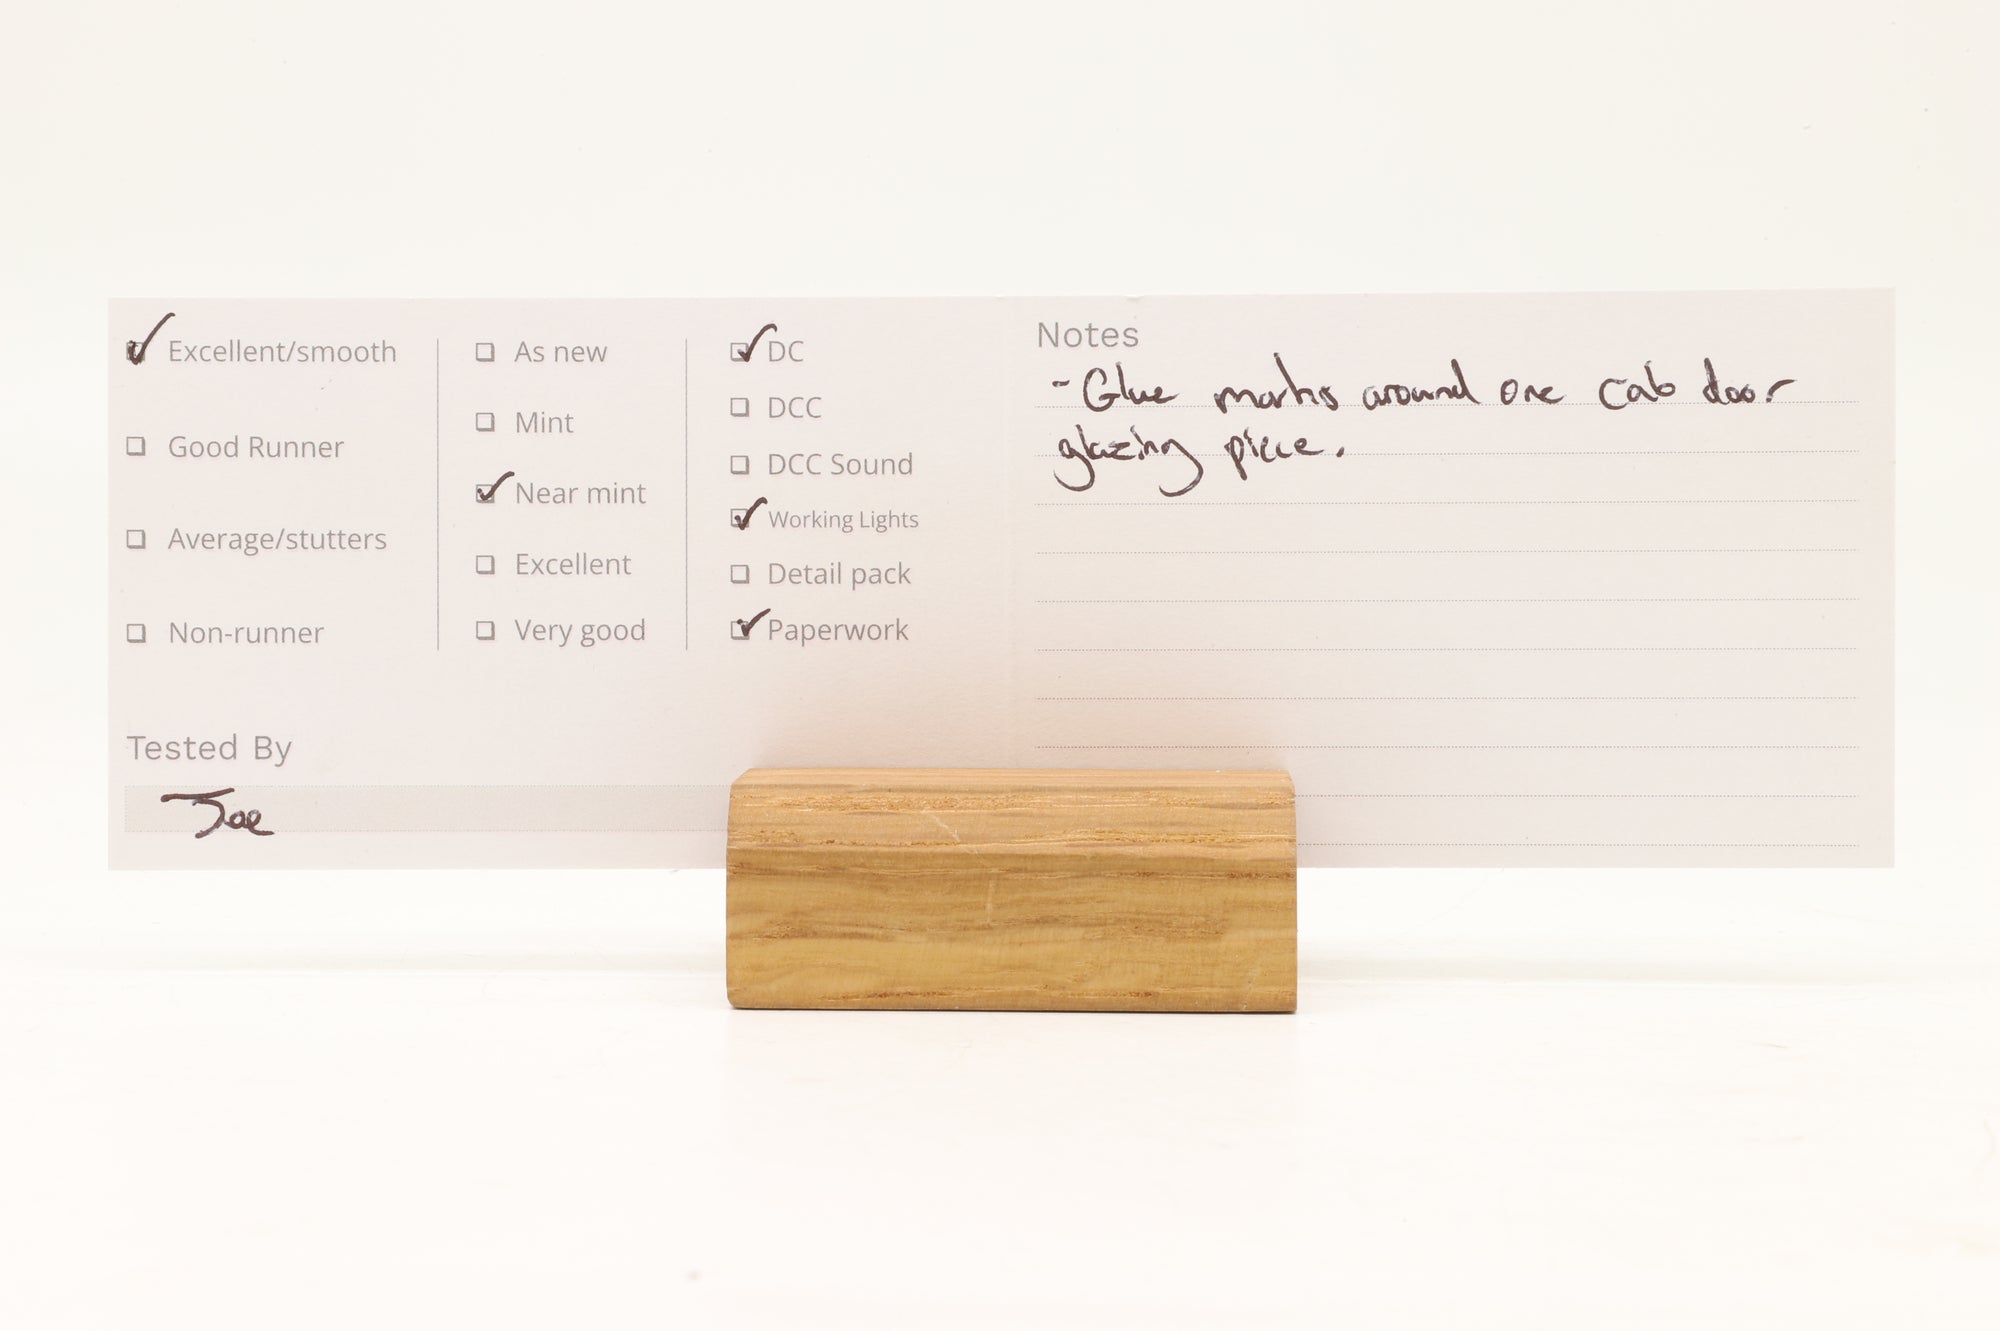 Excellent/smooth
Good Runner
Average/stutters
Non-runner
As new
Mint
Near mint
Excellent
Very good
DC
DCC
DCC Sound
Working Lights
Detail pack
Paperwork
Tested By
Joe
Notes
- Glue marks around one cab door
glazing piece.